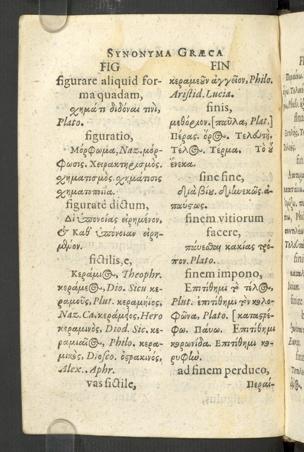 SYNONYMA GRÆCA
FIG
figurare aliquid for-
ma quadam,
σχημάτι διδόναι τινὶ,
Plato.
figuratio,
Μόρφωμα, Naz. μόρ-
φωσις. Χειρακτηρισμός.
σχηματισμὸς σχημάτισις
σχηματοποιία.
figuratè dictum,
Δι' ὑπονοίας εἰρημένον,
& Καθ' ὑπόνοιαν εἰρη-
μένον.
fictilis, e,
Κεράμιος, Theophr.
κεράμεος, Dio. Sicu κε-
ραμεοῦς, Plut. κεραμήϊος,
Naz. Ca. κεράμῃος, Hero
κεραμινὸς, Diod. Sic. κε-
ραμιαῖος, Philo. κερα-
μικὸς, Diosco. ὀστρακινὸς,
Alex. Aphr.
vas fictile,
FIN
κεραμεοῦν ἀγγεῖον, Philo.
Aristid. Lucia.
finis,
μεθόριον. [παῦλα, Plat.]
Πέρας. ὅρος. Τελευτή.
Τέλος. Τέρμα. Τὸ οὗ
ἕνεκα.
sine fine,
διὰ βίου. διηνεκῶς. ἀ-
παύστως.
finem vitiorum
facere,
παύεσθαι κακίας τρό-
πον. Plato.
finem impono,
Ἐπιτίθημι τὸ τέλος,
Plut. ἐπιτίθημι τὸν κολο-
φῶνα, Plato. [καταστρέ-
φω. Παύω. Ἐπιτίθημι
κορωνίδα. Ἐπιτίθημι κο-
ρυφὼ.
ad finem perduco,
Περαί-